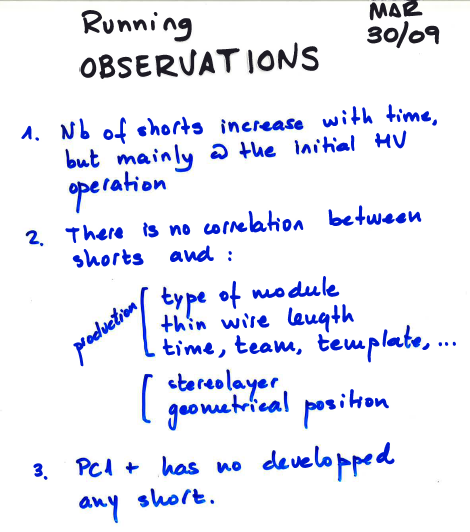 Running
MAR
30/09
OBSERVATIONS
1. Nb of shorts increase with time,
but mainly @ the initial HV
operation
2. There is no correlation between
shorts and :
production
type of module
thin wire length
time, team, template, ...
stereolayer
geometrical position
3. PC1 + has no developped
any short.